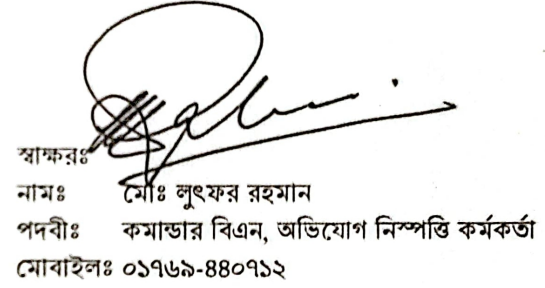 স্বাক্ষরঃ
নামঃ মোঃ লুৎফর রহমান
পদবীঃ কমান্ডার বিএন, অভিযোগ নিস্পত্তি কর্মকর্তা
মোবাইলঃ ০১৭৬৯-৪৪০৭১২